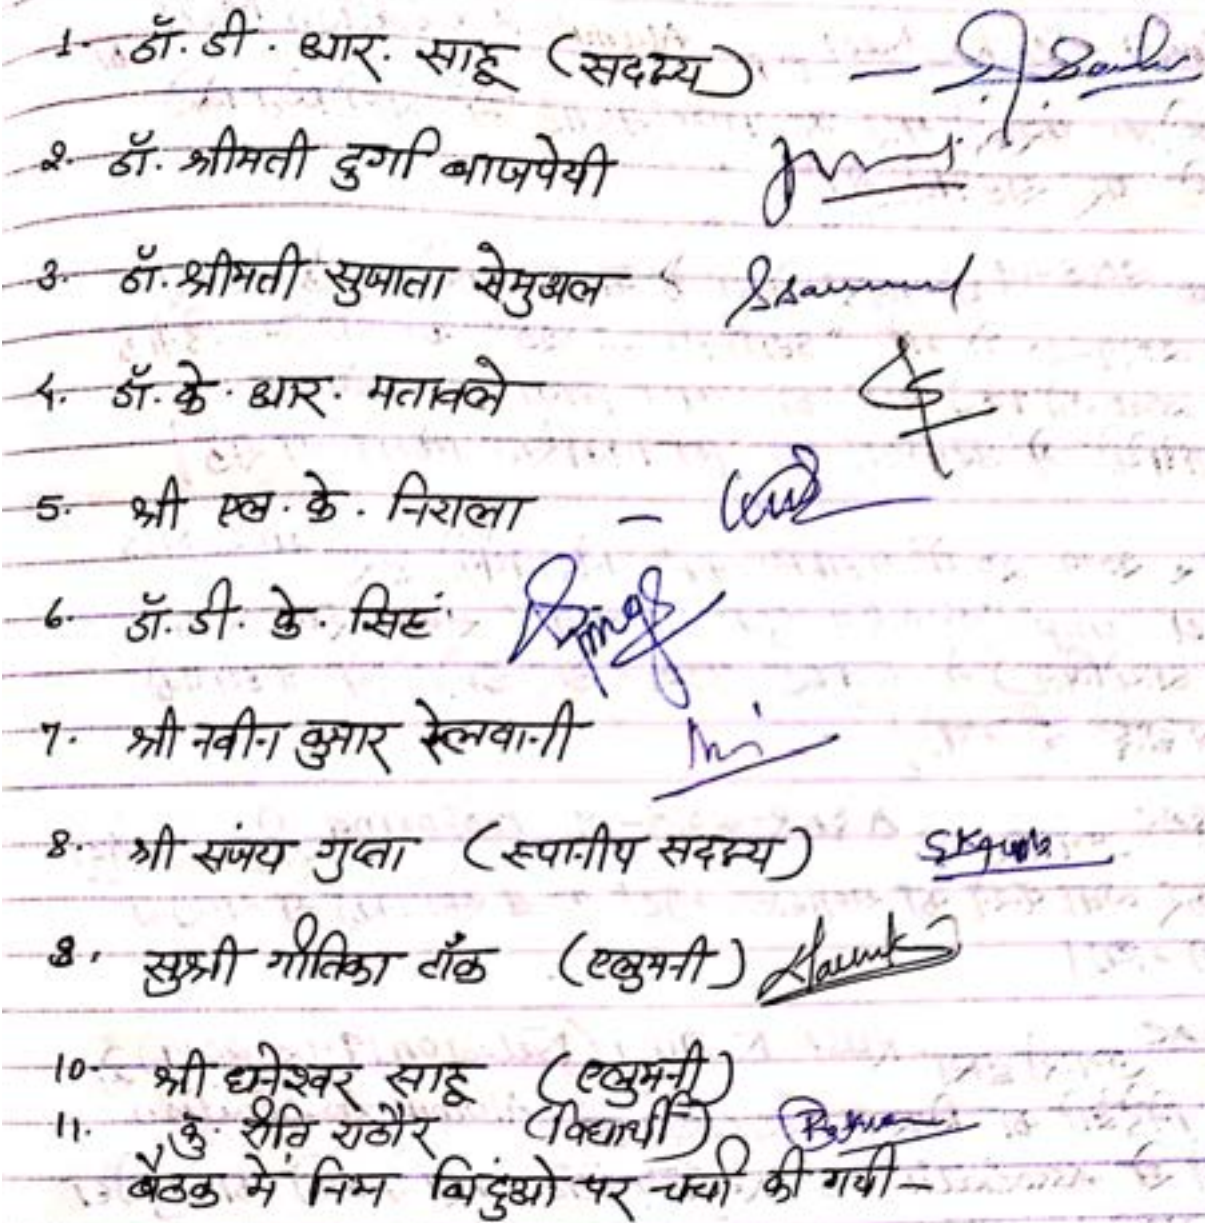 1. डॉ. डी. आर. साहू (सदस्य) -
2. डॉ. श्रीमती दुर्गा बाजपेयी
3. डॉ. श्रीमती सुजाता सेमुअल
4. डॉ. के. आर. मतावले
5. श्री एल. के. निराला -
6. डॉ. डी. के. सिहं
7. श्री नवीन कुमार रेलवानी
8. श्री संजय गुप्ता (स्थानीय सदस्य)
9. सुश्री गीतिका टॉंक (एलुमनी)
10. श्री धनेश्वर साहू (एलुमनी)
11. कु. राठौर (विद्यार्थी)
बैठक में निम्न बिंदुओ पर चर्चा की गयी-